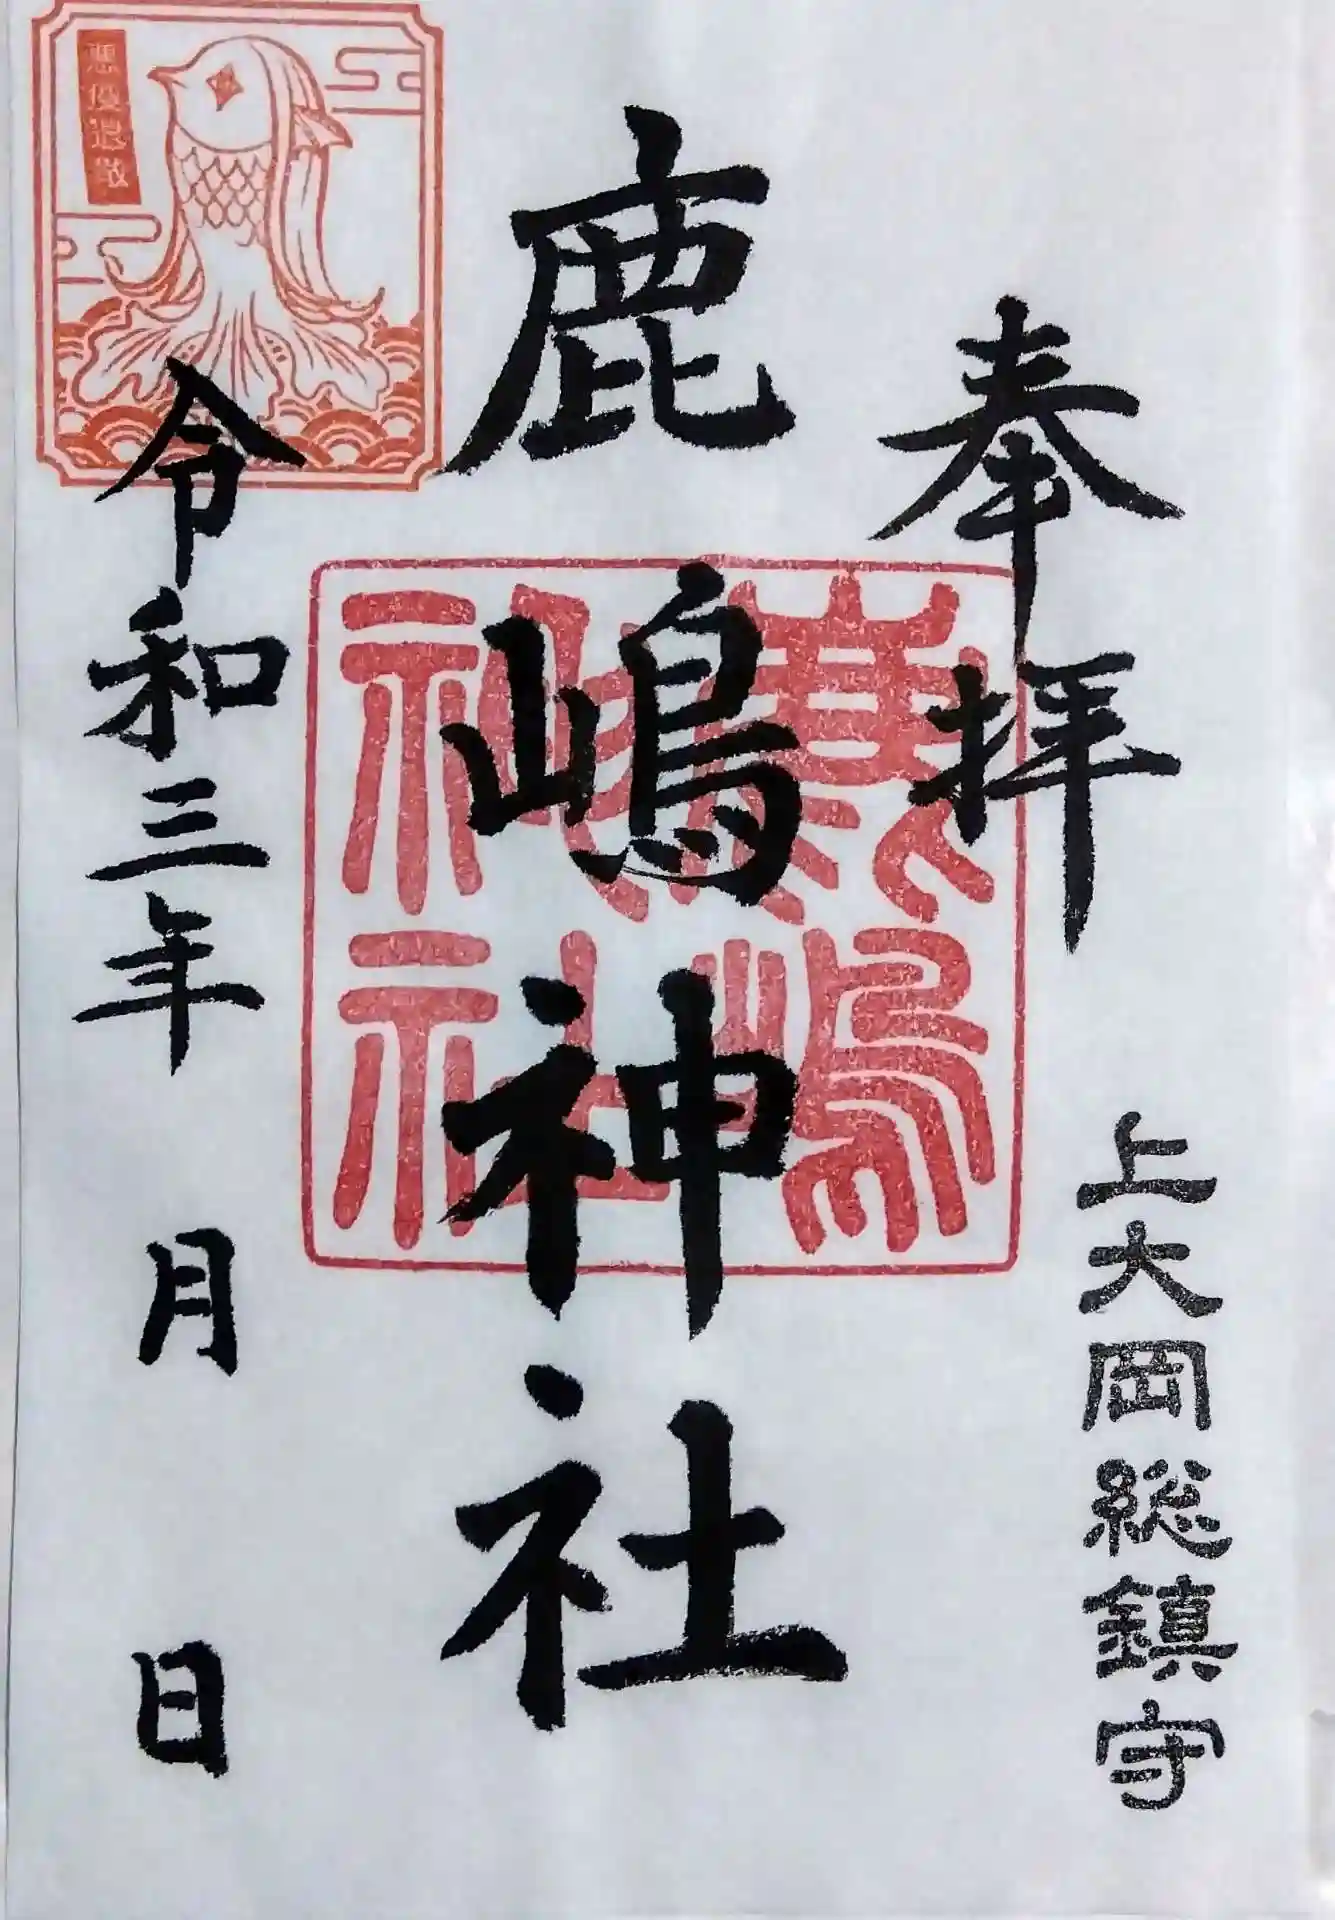 奉拝
上大岡総鎮守
鹿嶋神社
鹿嶋
神社
悪疫退散
令和三年 月 日